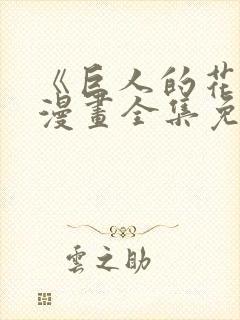 《巨人的花
漫畫全集免
雲之助